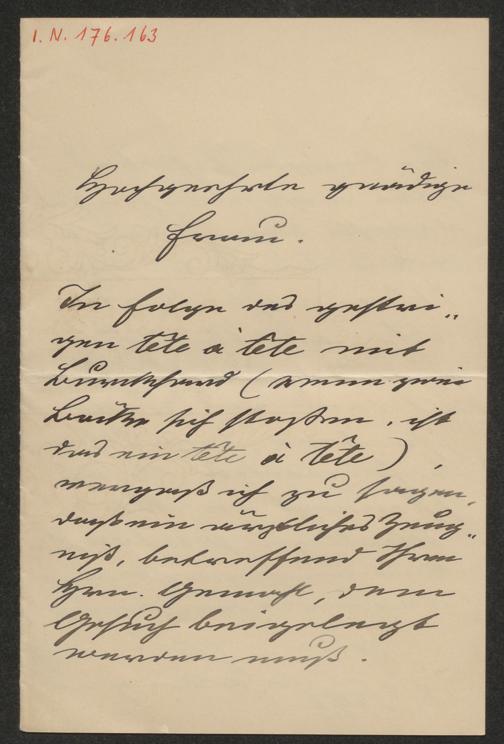 I. N. 176.163
Hochgeehrte gnädige
Frau.
In folge des gestri„
gen tête à tête mit
Burckhard (wenn zwei
Böcke sich stoßen, ist
das ein tête à tête),
vergaß ich zu sagen,
daß ein ärztliches Zeug„
niß, betreffend Ihren
Hrn. Gemahl, dem
Gesuch beigelegt
werden muß.